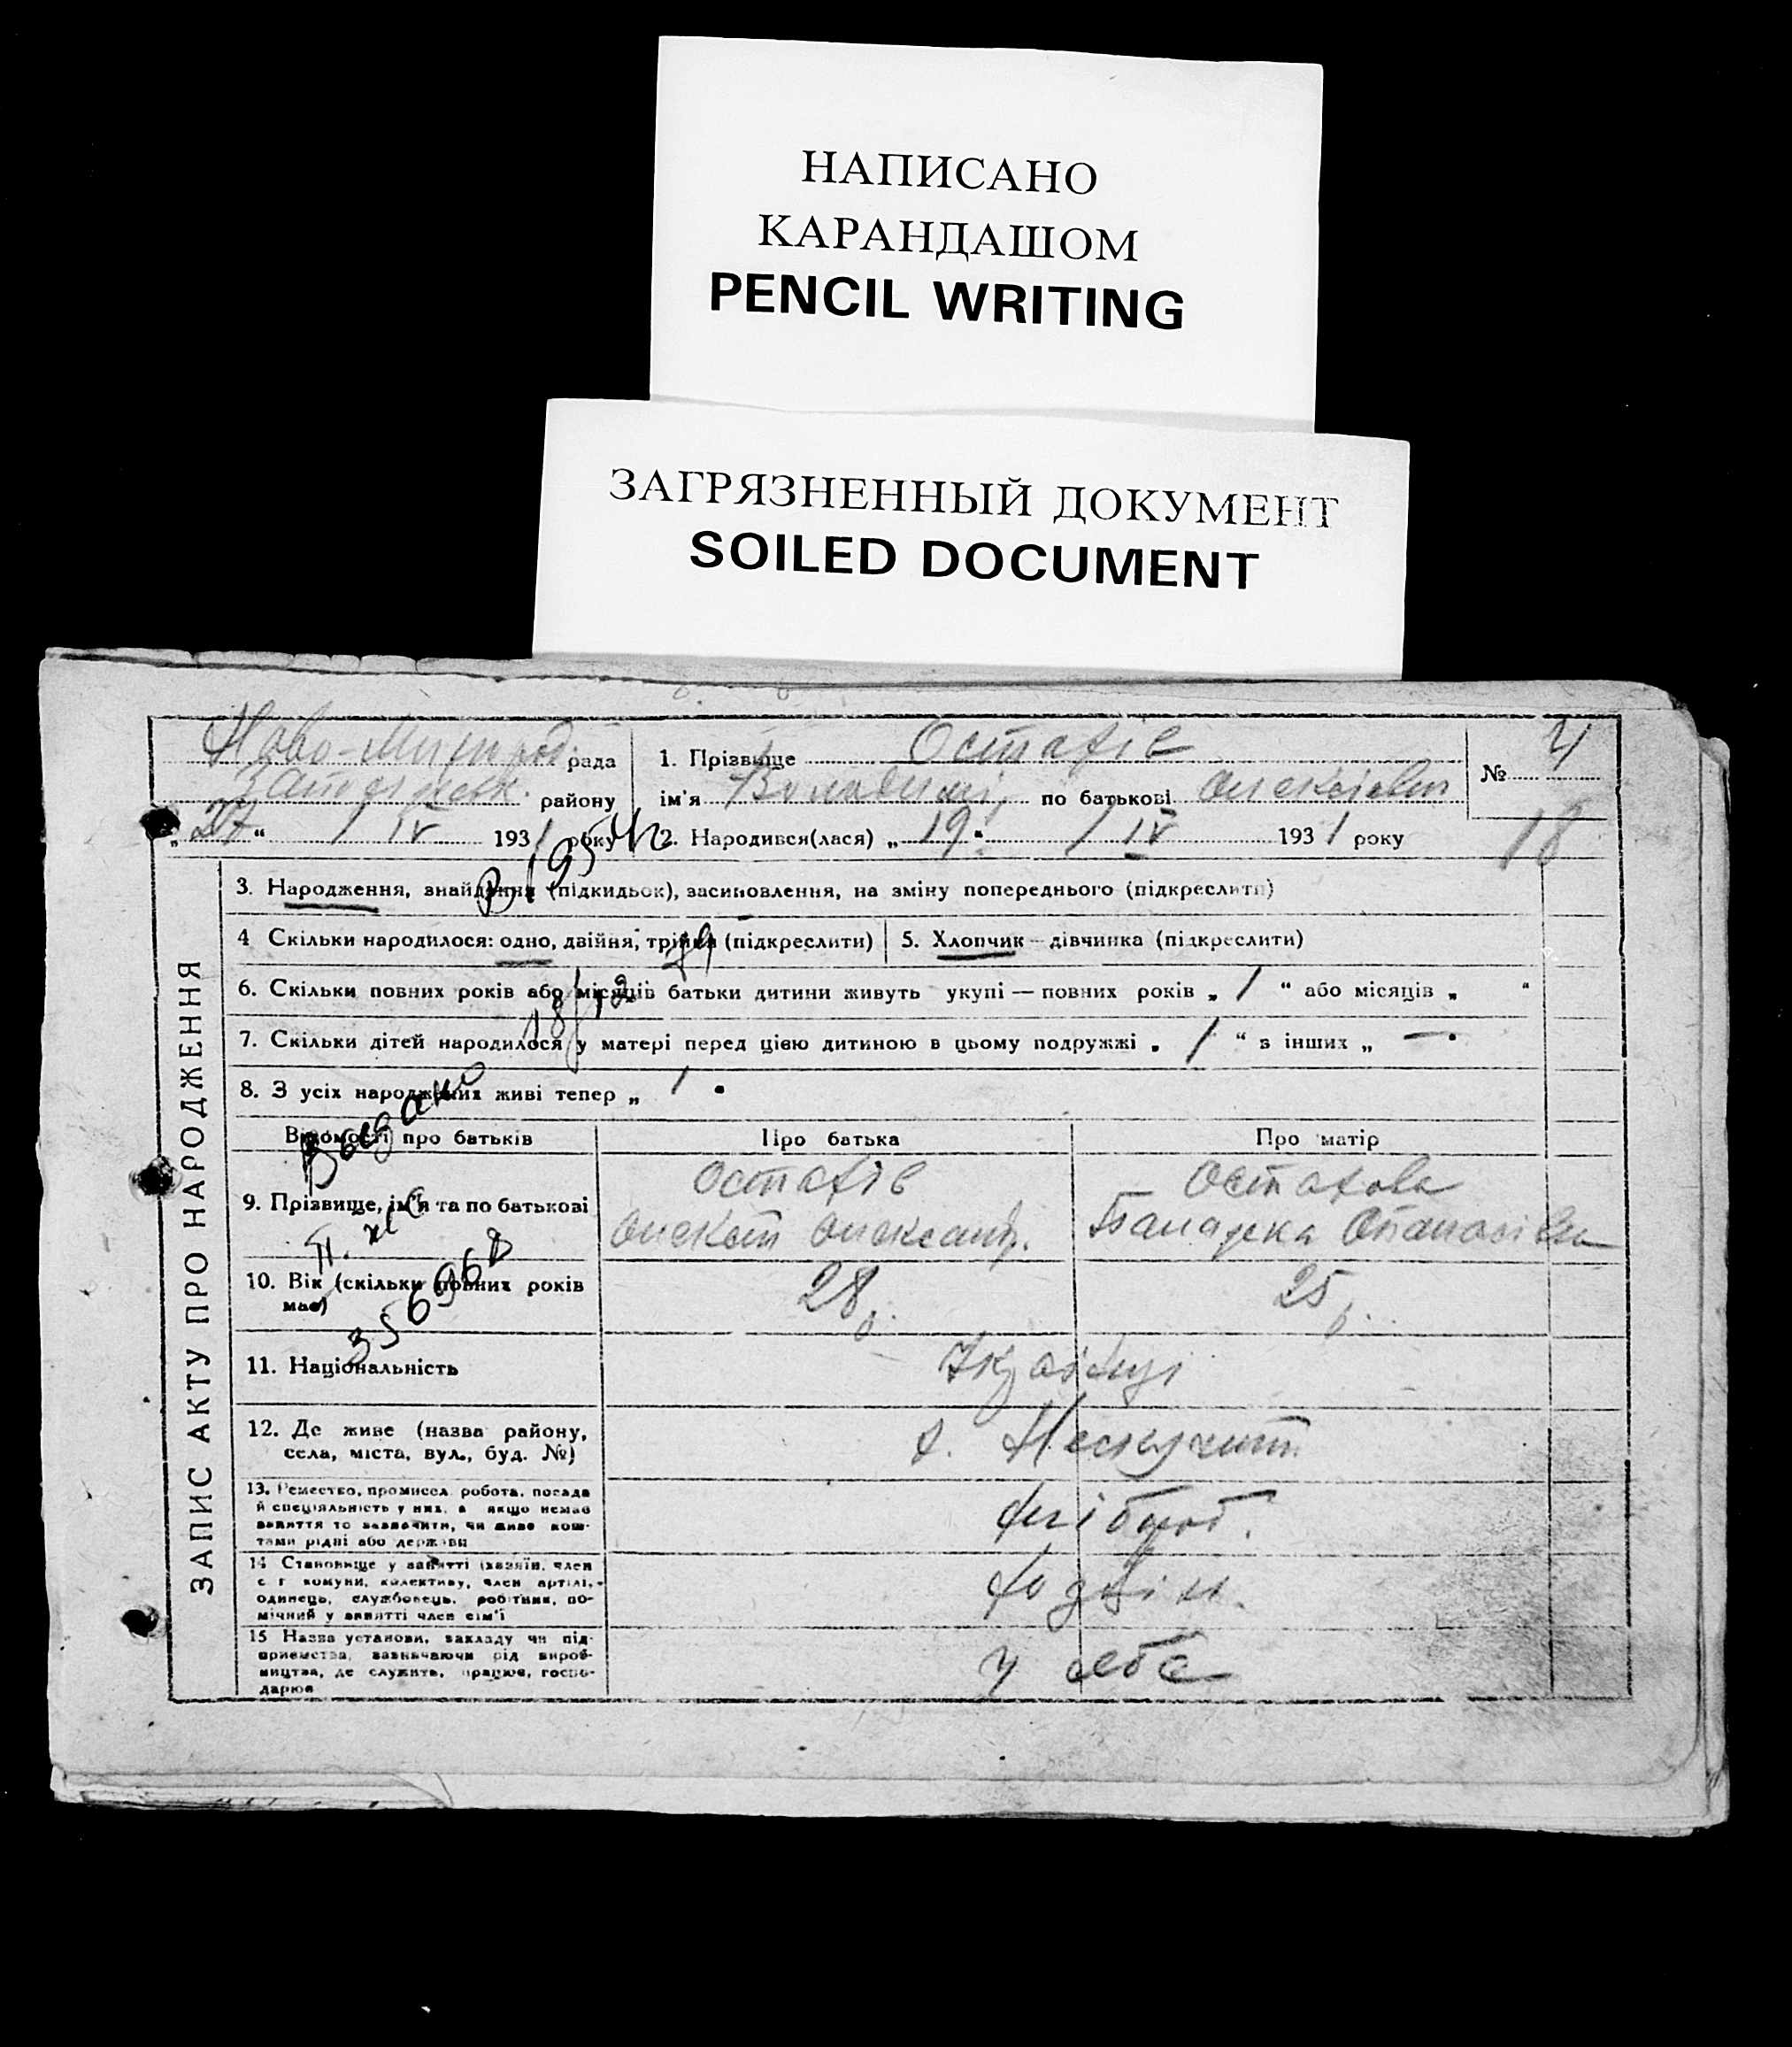 НАПИСАНО
КАРАНДАШОМ
PENCIL WRITING
ЗАГРЯЗНЕННЫЙ ДОКУМЕНТ
SOILED DOCUMENT
рада
району
„27“ / IV 1931 року
1. Прізвище Остахів
ім'я по батькові
2. Народився(лася) „19“ / IV 1931 року
№ 4
18
ЗАПИС АКТУ ПРО НАРОДЖЕННЯ
3. Народження, знайдення (підкидьок), засиновлення, на зміну попереднього (підкреслити)
4 Скільки народилося: одно, двійня, трійня (підкреслити)
5. Хлопчик – дівчинка (підкреслити)
6. Скільки повних років або місяців батьки дитини живуть укупі — повних років „ 1 “ або місяців „ “
7. Скільки дітей народилося у матері перед цією дитиною в цьому подружжі „ 1 “ з інших „ — “
8. З усіх народжених живі тепер „ 1 “
Відомості про батьків
Про батька
Про матір
9. Прізвище, ім'я та по батькові
Остахів
Остахова
10. Вік (скільки повних років має)
28 р.
25 р.
11. Національність
Українці
12. Де живе (назва району,
села, міста, вул., буд. №)
х.
13. Ремество, промисел, робота, посада
й спеціяльність у них, а якщо немає
заняття то зазначити, чи живе кош-
тами рідні або держави
хлібороб.
14 Становище у занятті (хазяїн, член
с г комуни, колективу, член артілі,
одинець, службовець, робітник, по-
мічний у занятті член сім'ї
хазяїн.
15 Назва установи, закладу чи під-
приємства, зазначаючи рід вироб-
ництва, де служить, працює, госпо-
дарює
у себе
Выдано